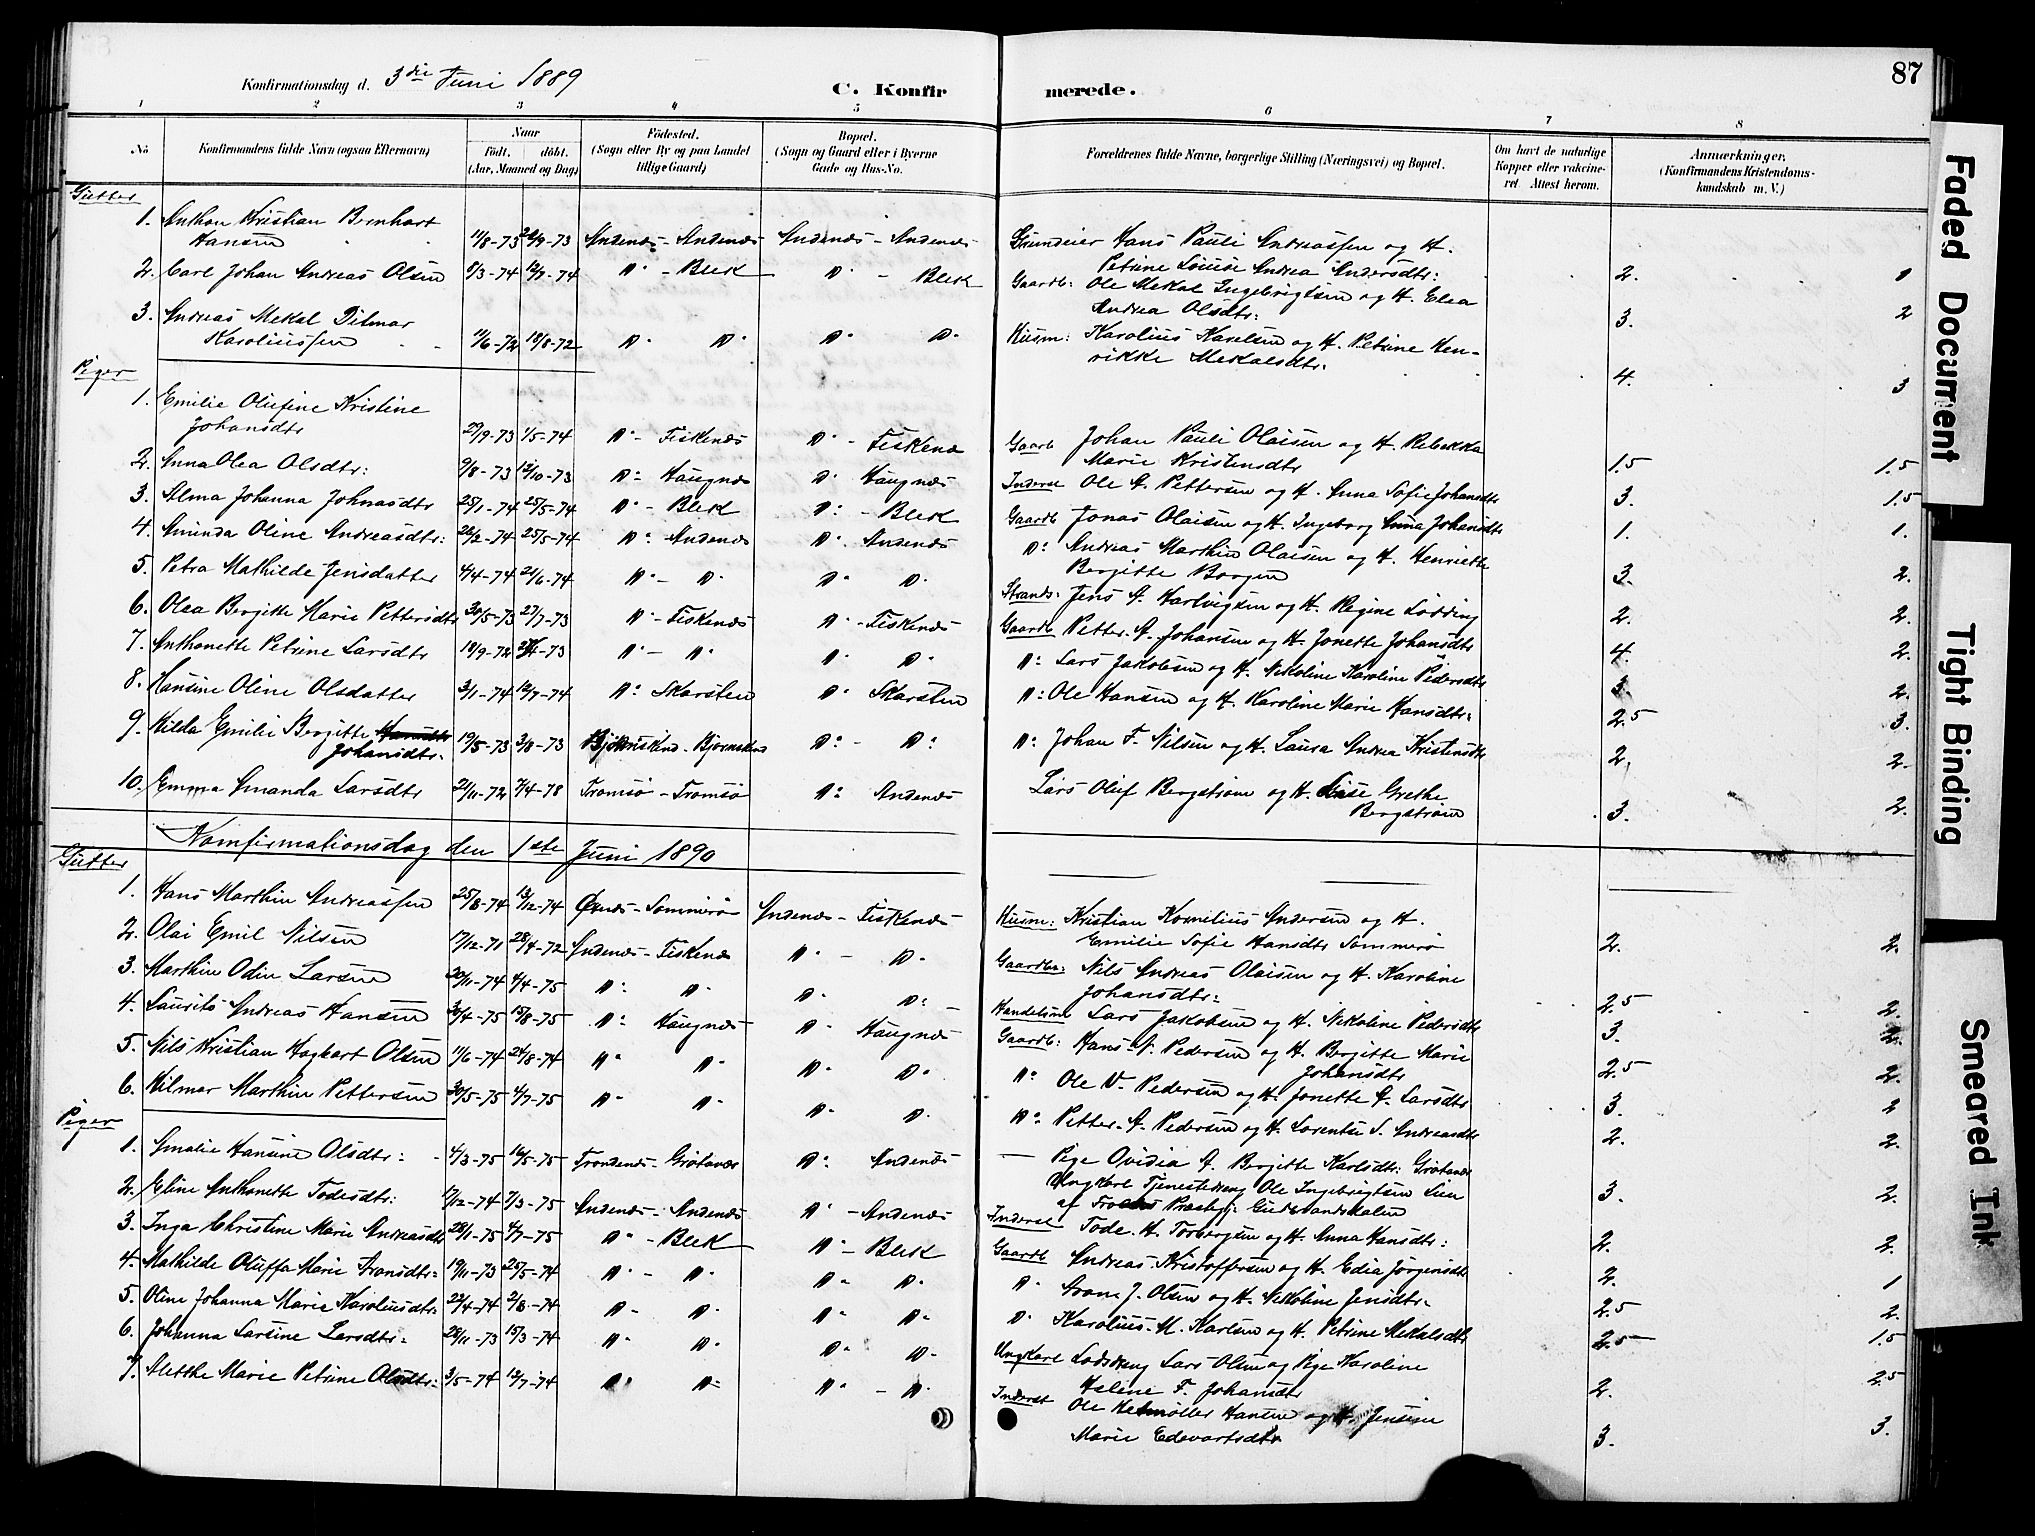 87
Konfirmationsdag d. 3die Juni 1889
C. Konfirmerede.
1 2 3 4 5 6 7 8
No. Konfirmandens fulde Navn (ogsaa Efternavn) Naar Født. døbt. (Aar, Maaned og Dag) Fødested. (Sogn eller By og paa Landet tillige Gaard) Bopæl. (Sogn og Gaard eller i Byerne Gade og Hus-No. Forældrenes fulde Navne, borgerlige Stilling (Næringsvei) og Bopæl. Om havt de naturlige Kopper eller vakcineret. Attest herom. Anmærkninger. (Konfirmandens Kristendomskundskab m. V.)
Gutter
1. Anthon Kristian Bernhart Hansen 11/8-73 /9-73 Andenæs - Andenæs Andenæs - Andenæs Grundeier Hans Pauli Andreassen og H. Petrine Louise Andrea Andersdtr: 2. 1
2. Carl Johan Andreas Olsen /3-74 12/7-74 D: - Blek D: - Blek Gaardb: Ole Mekal Ingebrigtsen og H. Elea Andrea Olsdtr: 3. 2
3. Andreas Mekal Ditmar Karoliussen 11/6-72 18/8-72 D: D: D: D: Husm: Karolius Karelsen og H. Petrine Henrikke Mekalsdtr. 4. 3
Piger
1. Emilie Olufine Kristine Johansdtr 29/9-73 1/5-74 D: - Fiskenæs D: - Fiskenæs Gaardb Johan Pauli Olaisen og H. Rebekka Marie Kristensdtr 1.5 1.5
2. Anna Olea Olsdtr: 9/8-73 12/10-73 D: Haugnæs D: Haugnæs Inderst Ole A. Pettersen og H. Anna Sofie Johansdtr 3. 1.5
3. Alma Johanna Johnasdtr 25/1-74 25/5-74 D: - Blek D: - Blek Gaardb Jonas Olaisen og H. Ingeborg Anna Johansdtr 1. 1.
4. Amunda Oline Andreasdtr: 26/2-74 25/5-74 D: Andenæs D: Andenæs D: Andreas Marthin Olaisen og H. Henriette Bergitte Borgen 3. 2.
5. Petra Mathilde Jensdatter 4/4-74 21/6-74 D: - D: D: D: Strands: Jens A. Hartvigsen og H. Regine Lødding 2. 2.
6. Olea Bergitte Marie Pettersdtr 30/5-73 27/7-73 D: - Fiskenæs D: - Fiskenæs Gaardb Petter A. Johansen og H. Jonette Johansdtr 4. 2.
7. Anthonette Petrine Larsdtr 18/9-72 /4-73 D: - D: D: D: D: Lars Jakobsen og H. Nikoline Karoline Pedersdtr 3 2.
8. Hansine Oline Olsdatter 3/1-74 12/7-74 D: Skarsten D: Skarsten D: Ole Hansen og H. Karoline Marie Hansdtr: 2.5 3.
9. Hilda Emilie Bergitte Johansdtr. 19/5-73 3/8-73 Bjørnskind - Bjørnskind D: - D: D: Johan F. Nilsen og H. Laura Andrea Kristensdtr 2. 2.
10. Emma Amanda Larsdtr 21/11-72 7/4-78 Tromsø - Tromsø D: Andenæs Lars Oluf Bergstrøm og H. Lise Grethe Bergstrøm 3. 2.
Konfirmationsdag den 1ste Juni 1890
Gutter
1. Hans Marthin Andreassen 25/8-74 13/12-74 Øxnæs - Sommerø Andenæs - Fiskenæs Husm: Kristian Kornelius Andersen og H. Emilie Sofie Hansdtr Sommerø 2. 2.
2. Olai Emil Nilsen 17/12-71 28/4-72 Andenæs - Fiskenæs D: - D: Gaardbr: Nils Andreas Olaisen og H. Karoline Johansdtr: 2.5 2.
3. Marthin Odin Larsen 20/11-74 4/4-75 D: D: D: D: Handelsm Lars Jakobsen og H. Nikoline Pedersdtr 3. 2.
4. Laurits Andreas Hansen 30/4-75 15/8-75 D: Haugnæs D: Haugnæs Gaardb: Hans N. Pedersen og H. Bergitte Marie Johansdtr 2.5 2.
5. Nils Kristian Hagbart Olsen 11/6-74 24/8-74 D: D: D: D: D: Ole V. Pedersen og H. Jonette P. Larsdtr 3. 2
6. Hilmar Marthin Pettersen 30/5-75 4/7-75 D: D: D: D: D: Petter A. Pedersen og H. Lorentse S. Andreasdtr 2. 2.
Piger
1. Amalie Hansine Olsdtr: 4/3-75 16/5-75 Trondenæs - Grøtanæs D: Andenæs — Pige Ovidia A. Bergitte Karlsdtr: Grøtanæs Ungkarl Tjenestedreng Ole Ingebrigtsen Lien af Præstegj: Gudbrandsdalen 3. 2.
2. Eline Anthonette Todesdtr: /12-74 7/3-75 Andenæs - Andenæs D: - Andenæs Inderst Tode H. Torbergsen og H. Anna Hansdtr: 2. 2.
3. Inga Christine Marie Andreasdtr 28/1-75 4/7-75 D: - Blek D: - Blek Gaardb Andreas Kristoffersen og H. Edia Jørgensdtr 2. 1
4. Mathilde Oluffa Marie Aronsdtr: 19/11-73 25/5-74 D: - D: D: D: D: Aron J. Olsen og H. Nikoline Jensdtr: 2.5 2.
5. Oline Johanna Marie Karoliusdtr: 22/4-74 2/8-74 D: D: D: D: D: Karolius M. Karlsen og H. Petrine Mekalsdtr 2.5 1.5
6. Johanna Larsine Larsdtr: 28/11-73 15/3-74 D: D: D: D: Ungkarl Lodsdreng Lars Olsen og Pige Karoline Helene F. Johansdtr 2. 2.5
7. Aletthe Marie Petrine Olsdtr: 3/5-74 12/7-74 D: D: D: - D: Inderst Ole Hetmøller Hansen og H. Jensine Marie Edvartsdtr 3. 3.
Faded Document
Tight Binding
Smeared Ink